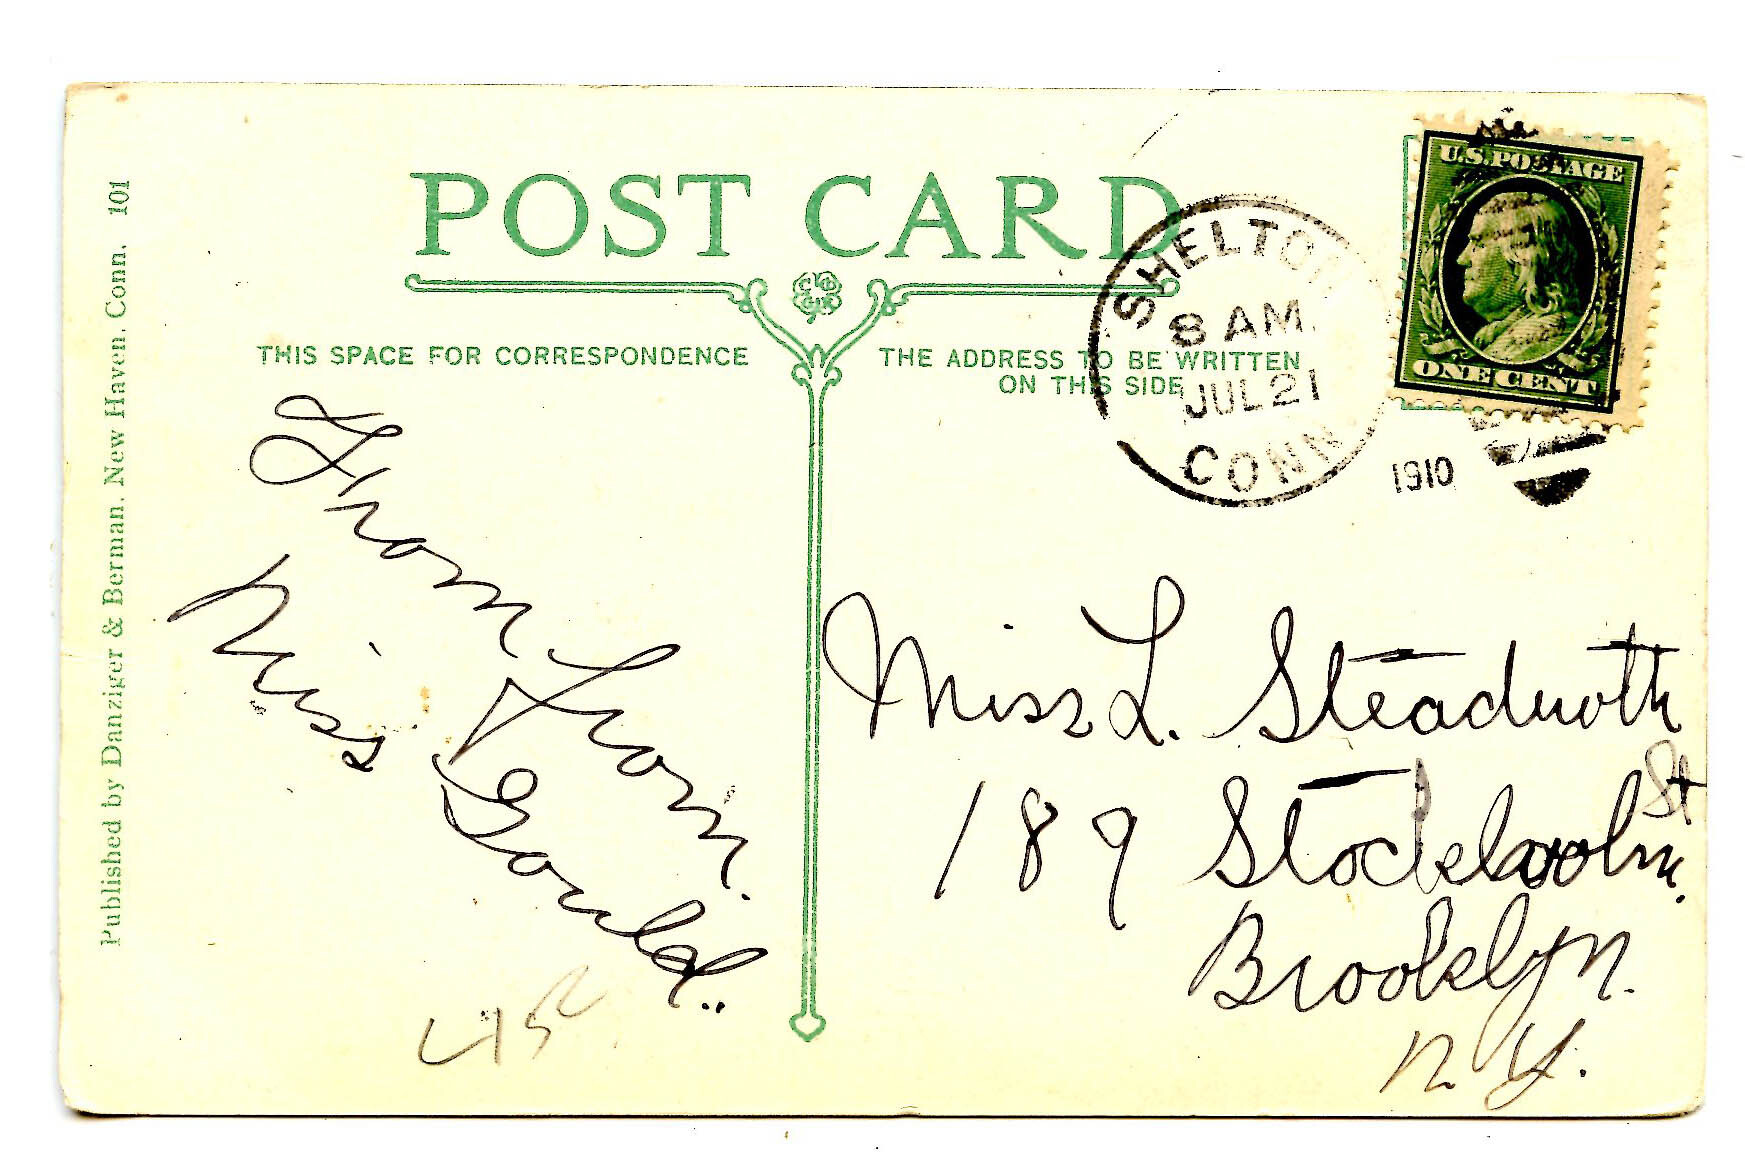 POST CARD
THIS SPACE FOR CORRESPONDENCE
THE ADDRESS TO BE WRITTEN
ON THIS SIDE
SHELTON
8 AM.
JUL 21
CONN
1910
U.S. POSTAGE
ONE CENT
From From.
Miss Gould..
Miss L. Steadworth
189 Stockholm. St
Brooklyn.
N.Y.
Published by Danziger & Berman, New Haven, Conn. 101